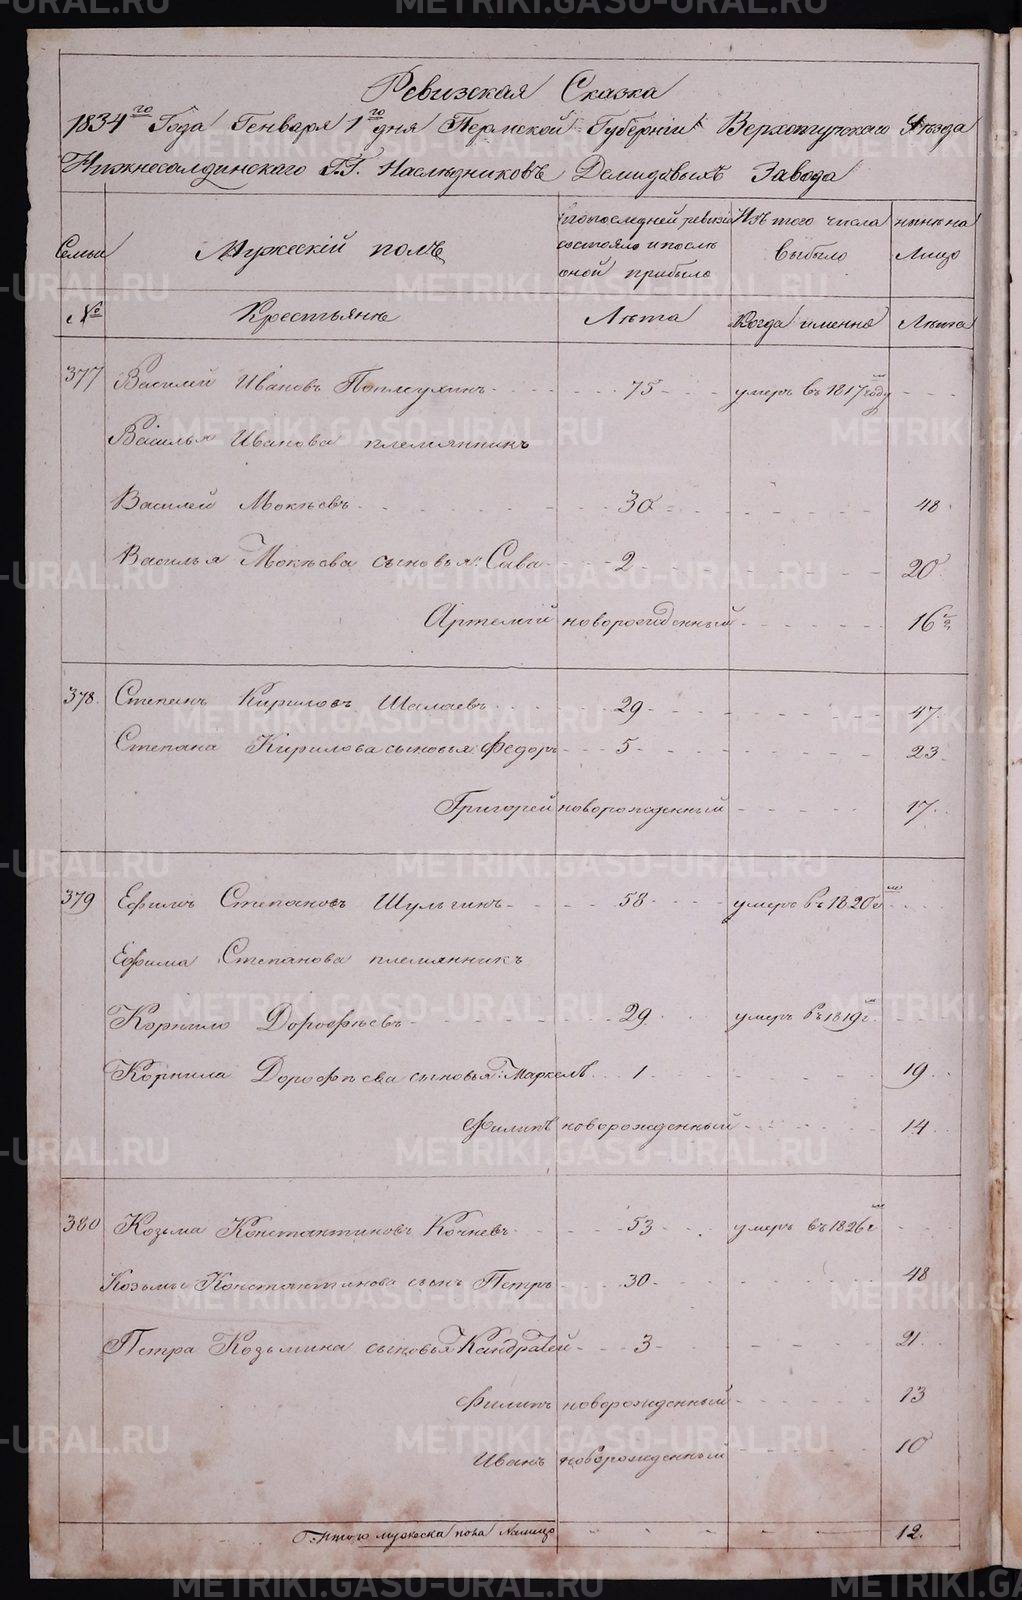 Ревизская Сказка
1834го Года Генваря 1го дня Пермской Губернiи Верхотурскаго Уѣзда
Нижнесалдинскаго Г.Г. Наслѣдниковъ Демидовыхъ Завода
Семьи Мужескiй полъ по последней ревизiи состояло и послѣ оной прибыло Изъ того числа выбыло нынѣ на лицо
№ Крестьянъ Лѣта Когда именно Лѣта
377 Василей Ивановъ 75 умеръ въ 1817м году
Василья Иванова племянникъ
Василей Мокѣевъ 30 48
Василья Мокѣева сыновья: Сава 2 20
Артемiй новорожденный 16
378. Степанъ Кириловъ Шалаевъ 29 47.
Степана Кирилова сыновья: Федоръ 5 23
Григорей новорожденный 17.
379 Ефимъ Степановъ Шульгинъ 58 умеръ въ 1820м г
Ефима Степанова племянникъ
Корнило Дорофѣевъ 29 умеръ въ 1819м г.
Корнила Дорофѣева сыновья: Маркелъ 1 19
Филипъ новорожденный 14
380 Козьма Константиновъ Кочневъ 53 умеръ въ 1826м г
Козьмы Константинова сынъ Петръ 30 48
Петра Козьмина сыновья Кандратей 3 21
Филипъ новорожденный 13
Иванъ новорожденный 10
Итого мужеска пола налицо 12.
METRIKI.GASO-URAL.RU